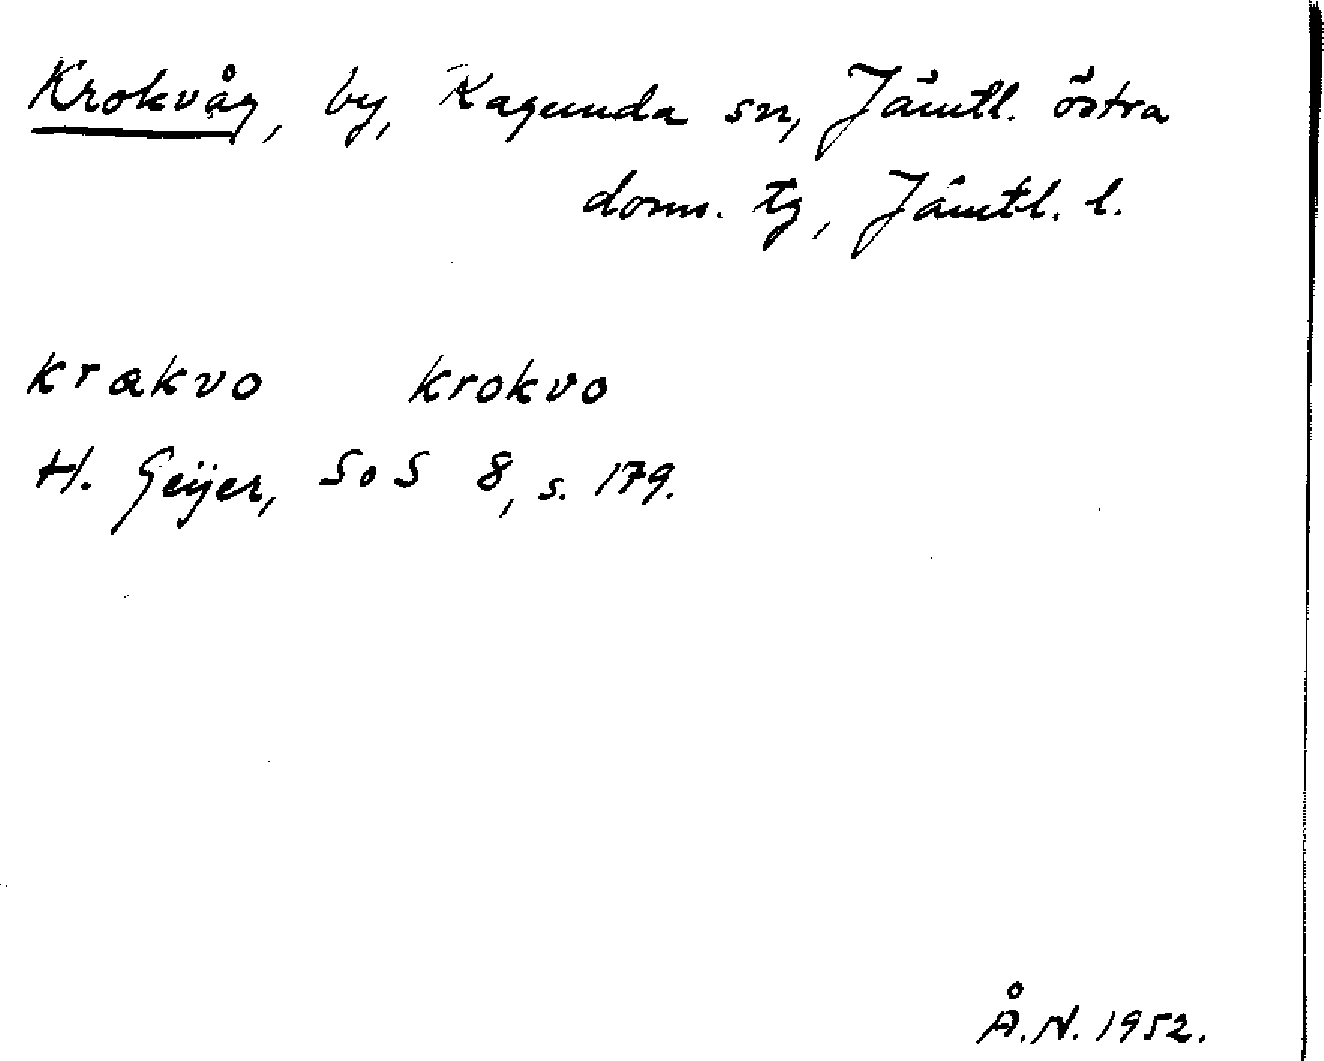 Krokvåg, by, Ragunda sn, Jämtl. östra
doms. tg, Jämtl. l.
krakvo krokvo
H. Geijer, SoS 8, s. 179.
Å.N. 1952.